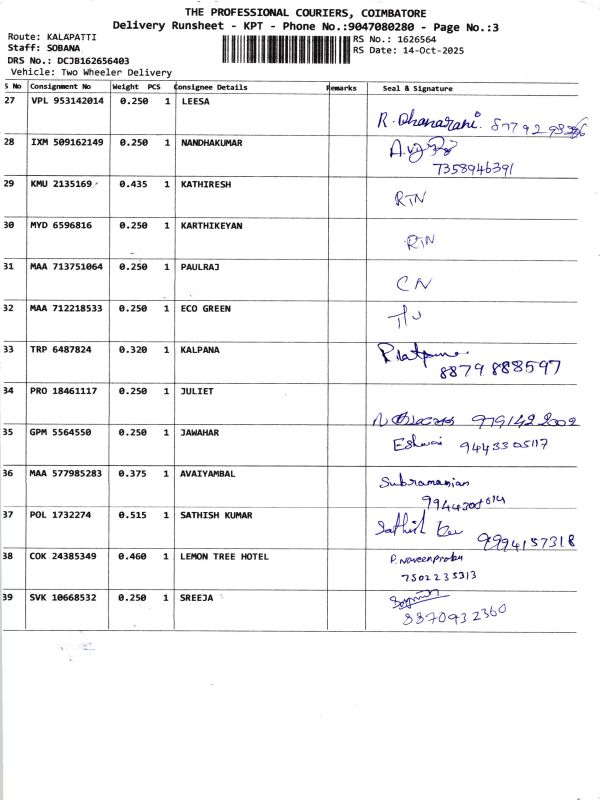 THE PROFESSIONAL COURIERS, COIMBATORE
Delivery Runsheet - KPT - Phone No.:9047080280 - Page No.:3
Route: KALAPATTI
Staff: SOBANA
DRS No.: DCJB162656403
Vehicle: Two Wheeler Delivery
RS No.: 1626564
RS Date: 14-Oct-2025
S No Consignment No Weight PCS Consignee Details Remarks Seal & Signature
27 VPL 953142014 0.250 1 LEESA
R. Dhanarani.
28 IXM 509162149 0.250 1 NANDHAKUMAR
7358946391
29 KMU 2135169 0.435 1 KATHIRESH
RTN
30 MYD 6596816 0.250 1 KARTHIKEYAN
RTN
31 MAA 713751064 0.250 1 PAULRAJ
CN
32 MAA 712218533 0.250 1 ECO GREEN
33 TRP 6487824 0.320 1 KALPANA
8879 888597
34 PRO 18461117 0.250 1 JULIET
979142 2002
35 GPM 5564550 0.250 1 JAWAHAR
Eshwari 9443305117
36 MAA 577985283 0.375 1 AVAIYAMBAL
Subramanian
37 POL 1732274 0.515 1 SATHISH KUMAR
Sathish 9994157318
38 COK 24385349 0.460 1 LEMON TREE HOTEL
P. Naveenprabu
7502235313
39 SVK 10668532 0.250 1 SREEJA
8870932360